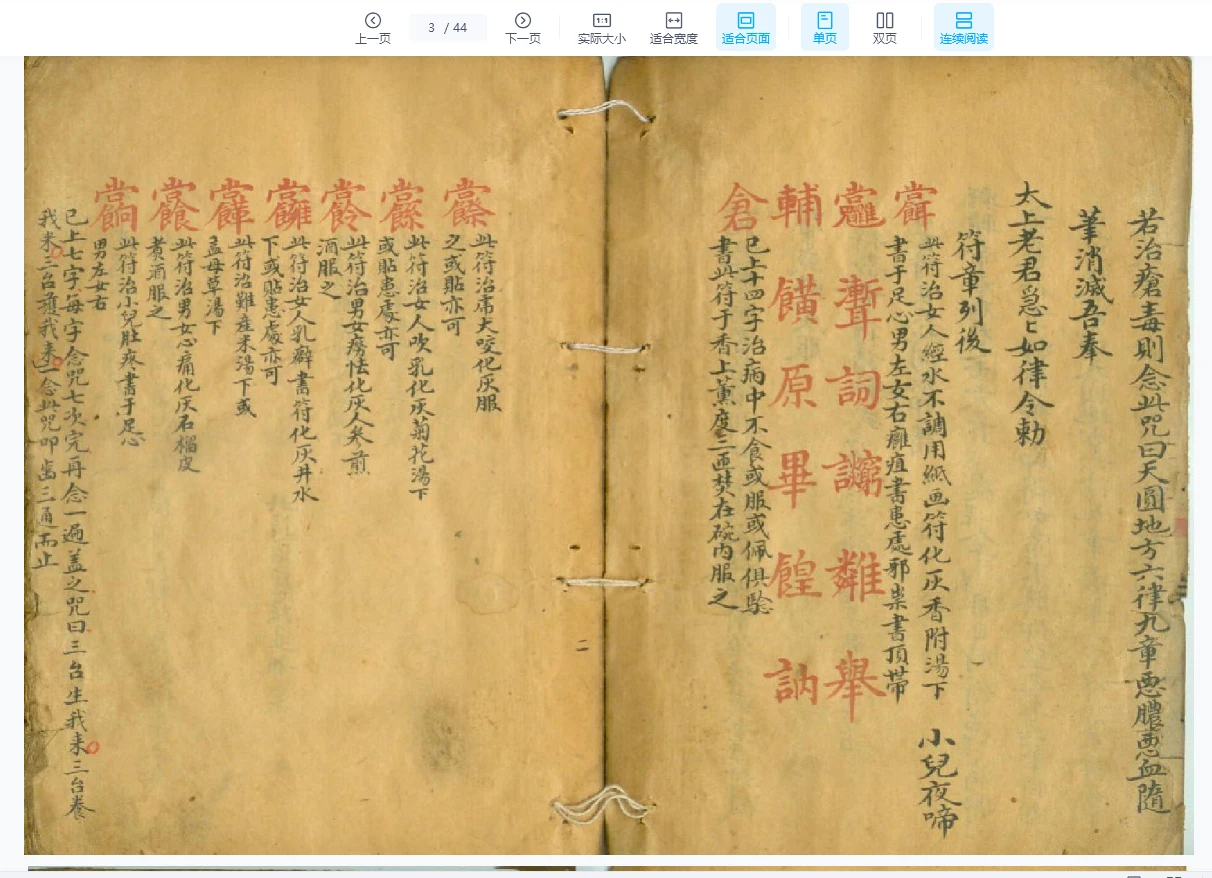 上一页
3 / 44
下一页
1:1
实际大小
适合宽度
适合页面
单页
双页
连续阅读
若治瘡毒則念此咒曰天圓地方六律九章惡膿惡血隨
筆消滅吾奉
太上老君急匕如律令勅
符章列後
此符治女人經水不調用紙画符化灰香附湯下 小兒夜啼
書于足心男左女右癰疽書患處邪祟書頂帶
詞 舉
輔 原 畢 訥
倉
已上十四字治病中不食或服或佩俱驗
書此符于香上薰度三匝焚在碗内服之
此符治席大咬化灰服
之或貼亦可
此符治女人吹乳化灰菊花湯下
或貼患處亦可
此符治男女癆怯化灰人參煎
酒服之
此符治女人乳癖書符化灰井水
下或貼患處亦可
此符治難産米湯下或
孟母草湯下
此符治男女心痛化灰石榴皮
煑酒服之
此符治小兒肚疼書于足心
男左女右
已上七字每字念咒七次完再念一遍盖之咒曰三台生我来三台養
我来三台護我来念此咒叩齒三通而止
二